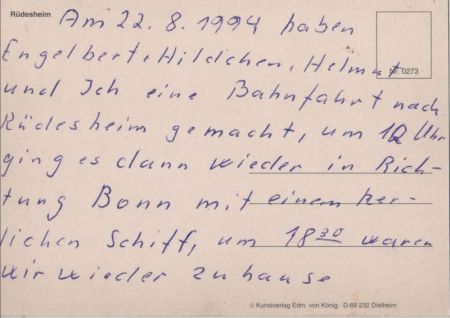 Rüdesheim
Am 22.8.1994 haben
Engelbert, Hildchen, Helmut
Nr. 0273
und Ich eine Bahnfahrt nach
Rüdesheim gemacht, um 12 Uhr
ging es dann wieder in Rich-
tung Bonn mit einem her-
lichen Schiff, um 18 30 waren
wir wieder zuhause
© Kunstverlag Edm. von König · D-69 232 Dielheim